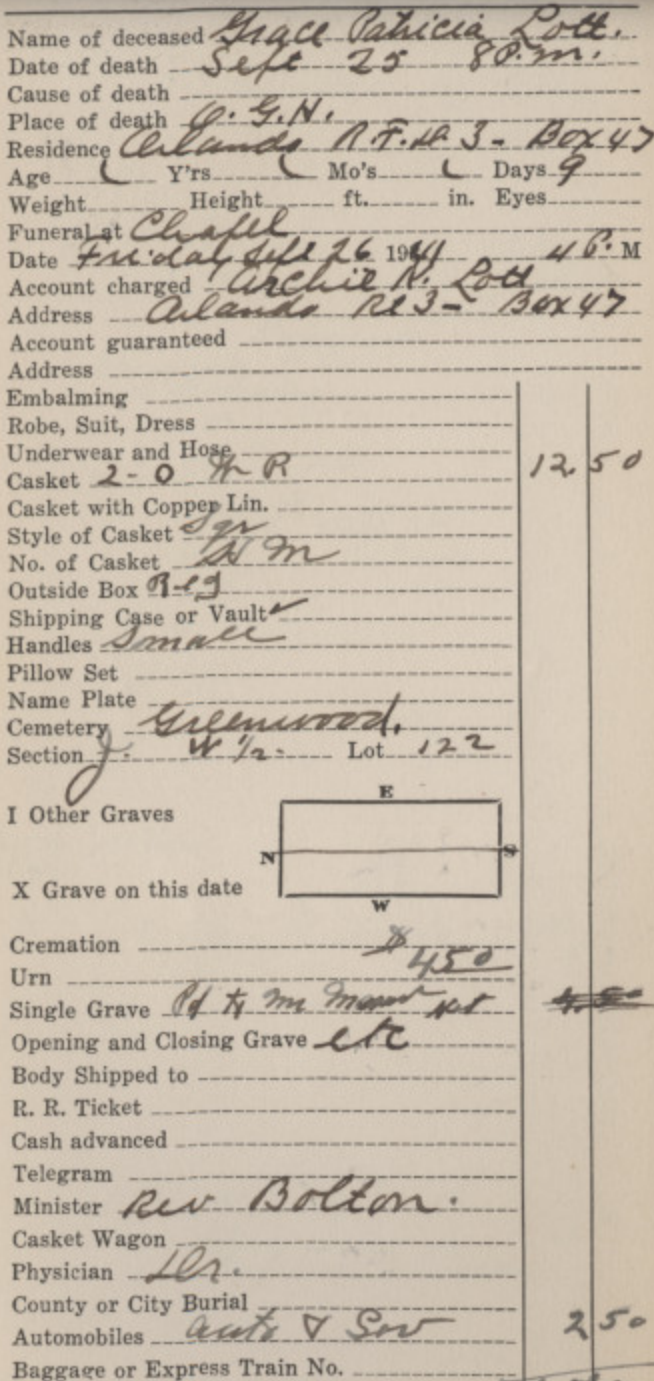 Name of deceased Grace Patricia Lott.
Date of death Sept 25 8 P.m.
Cause of death
Place of death O. G. H.
Residence Orlando R.F.D 3 - Box 47
Age Y'rs Mo's Days 9
Weight Height ft. in. Eyes
Funeral at Chapel
Date Friday Sept 26 1941 4 P. M
Account charged Archie R. Lott
Address Orlando Rt 3 - Box 47
Account guaranteed
Address
Embalming
Robe, Suit, Dress
Underwear and Hose
Casket 2-0 R 12.50
Casket with Copper Lin.
Style of Casket Sqr
No. of Casket
Outside Box Reg
Shipping Case or Vault
Handles Small
Pillow Set
Name Plate
Cemetery Greenwood.
Section J. W 1/2. Lot 122
E
I Other Graves
N S
X Grave on this date
W
Cremation $
450
Urn
Single Grave Pd to Mr
Opening and Closing Grave etc
Body Shipped to
R. R. Ticket
Cash advanced
Telegram
Minister Rev Bolton.
Casket Wagon
Physician Dr.
County or City Burial
Automobiles auto & Serv 2 50
Baggage or Express Train No.